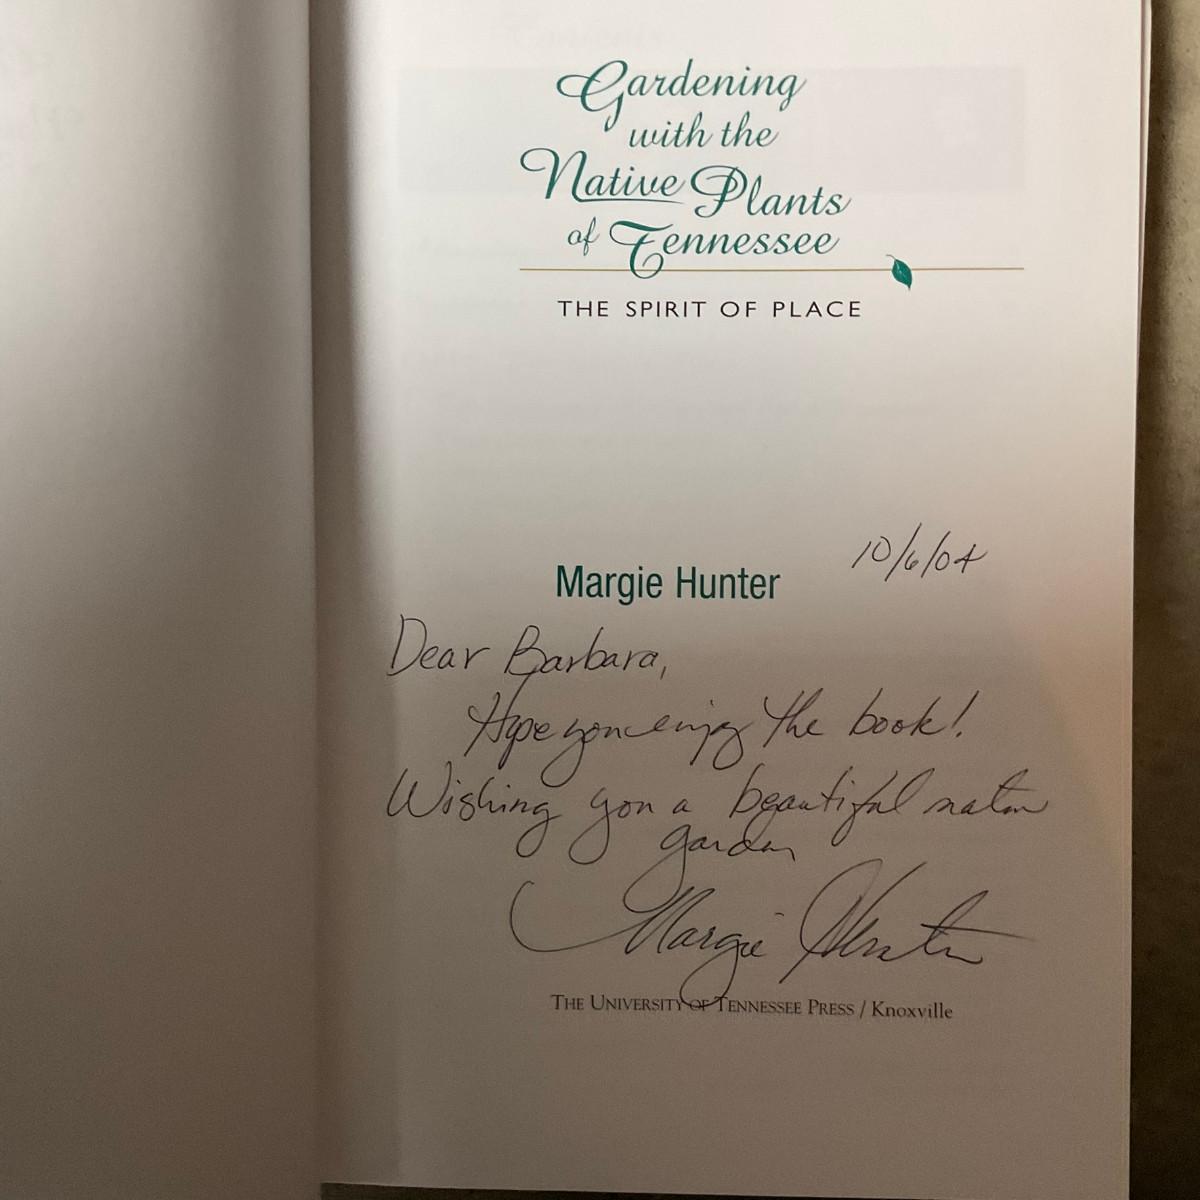 Gardening
with the
Native Plants
of Tennessee
THE SPIRIT OF PLACE
10/6/04
Margie Hunter
Dear Barbara,
Hope you enjoy the book!
Wishing you a beautiful
garden
Margie Hunter
THE UNIVERSITY OF TENNESSEE PRESS / Knoxville